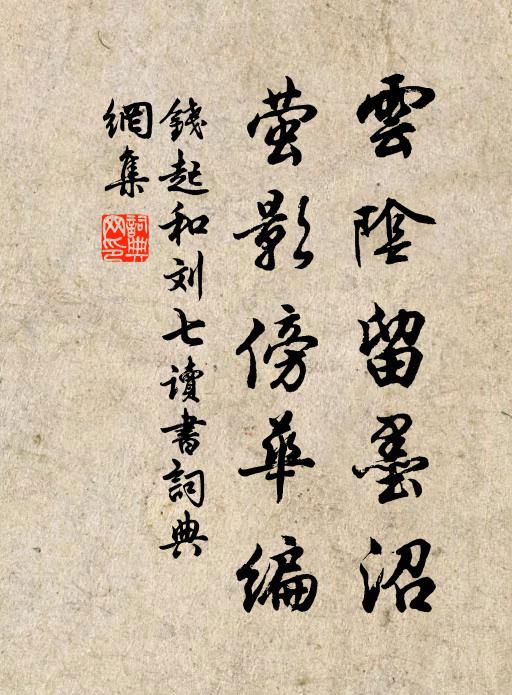 雲陰留墨沼
萤影傍華编
錢起和刘七讀書詞典
網集
詞典网印